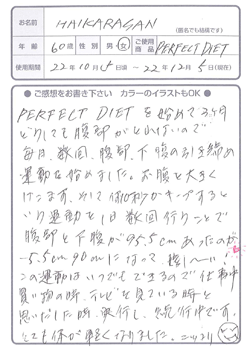 お名前 HAIKARASAN
(匿名でも結構です)
年齢 60歳 性別 男・女 ご使用商品 PERFECT DIET
使用期間 22年10月5日頃 ~ 22年12月5日(現在)
●ご感想をお書き下さい カラーのイラストもOK●
PERFECT DIETを始めて2ヶ月
どうしても腹部が とれないので
毎日、数回、腹部、下腹の引き締め
運動を始めました。お腹を大きく
けこます、そして 10秒 キープすると
いう運動を1日数回行うことで
腹部と下腹が95.5cmあったのが
-5.5cm 90cmになって、嬉しい
この運動はいつでもできるので仕事中
買い物の時、テレビを見ている時と
思いだした時、実行し、続行中です。
とても体が軽くなりました。ニッコリ